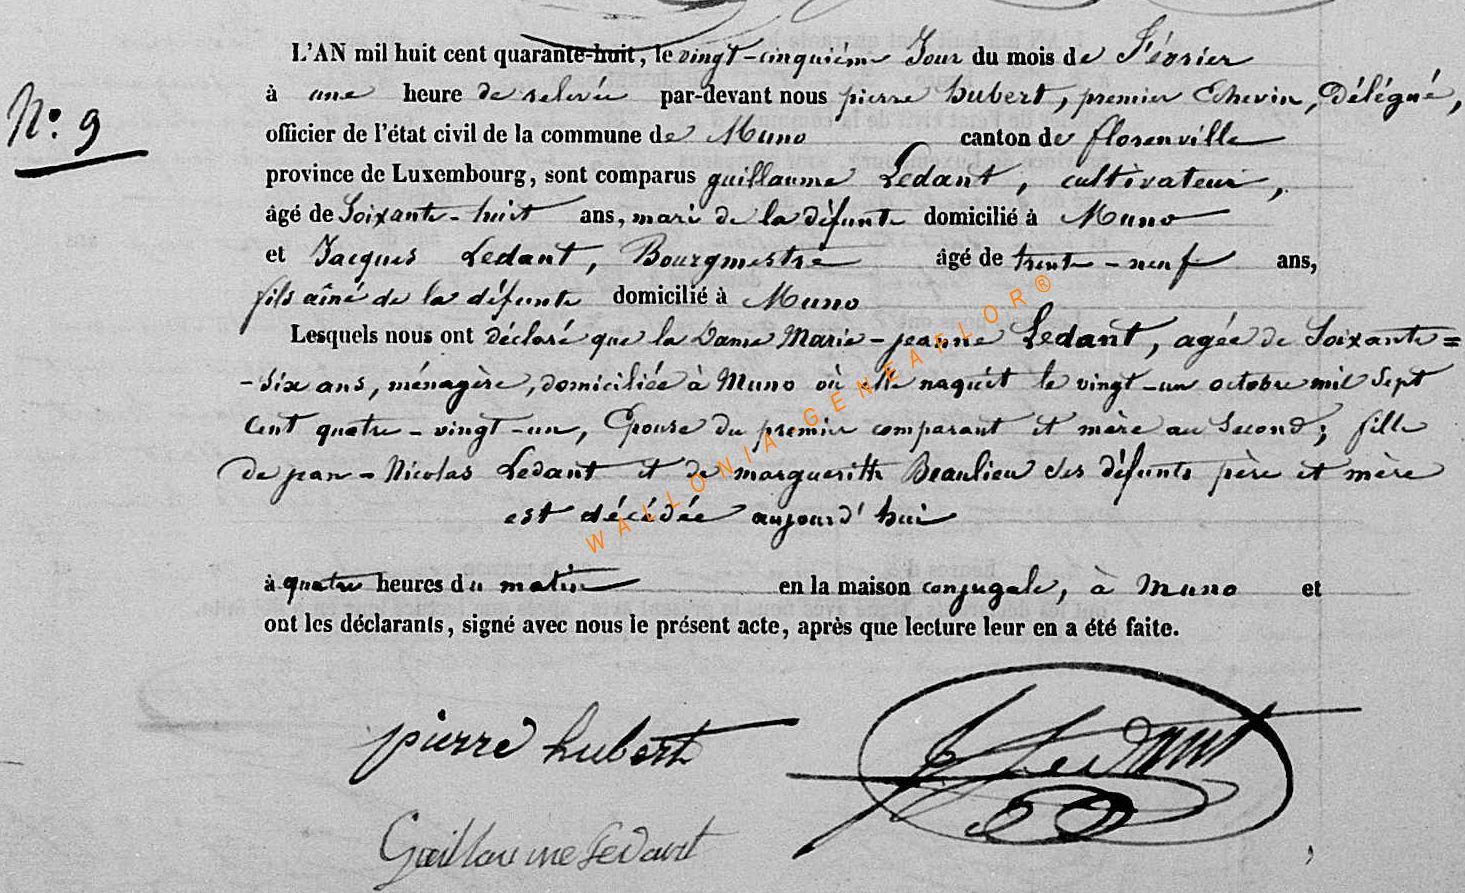 L'AN mil huit cent quarante-huit, le vingt-cinquième Jour du mois de Février
N.° 9
à une heure de relevée par-devant nous pierre hubert, premier Echevin, Délégué,
officier de l'état civil de la commune de Muno canton de florenville
province de Luxembourg, sont comparus guillaume Ledant, cultivateur,
âgé de Soixante-huit ans, mari de la défunte domicilié à Muno
et Jacques Ledant, Bourgmestre âgé de trente-neuf ans,
fils aîné de la défunte domicilié à Muno
Lesquels nous ont déclaré que la Dame Marie-jeanne Ledant, agée de Soixante=
-six ans, ménagère, domiciliée à Muno où elle naquit le vingt-un octobre mil Sept
Cent quatre-vingt-un, Epouse du premier comparant et mère au Second; fille
de jean-Nicolas Ledant et de margueritte Beaulieu ses défunts père et mère
est décédée aujourd'hui
à quatre heures du matin en la maison conjugale, à Muno et
ont les déclarants, signé avec nous le présent acte, après que lecture leur en a été faite.
pierre hubert
J Ledant
Guillaume Ledant
WALLONIA-GENEAFLOR®